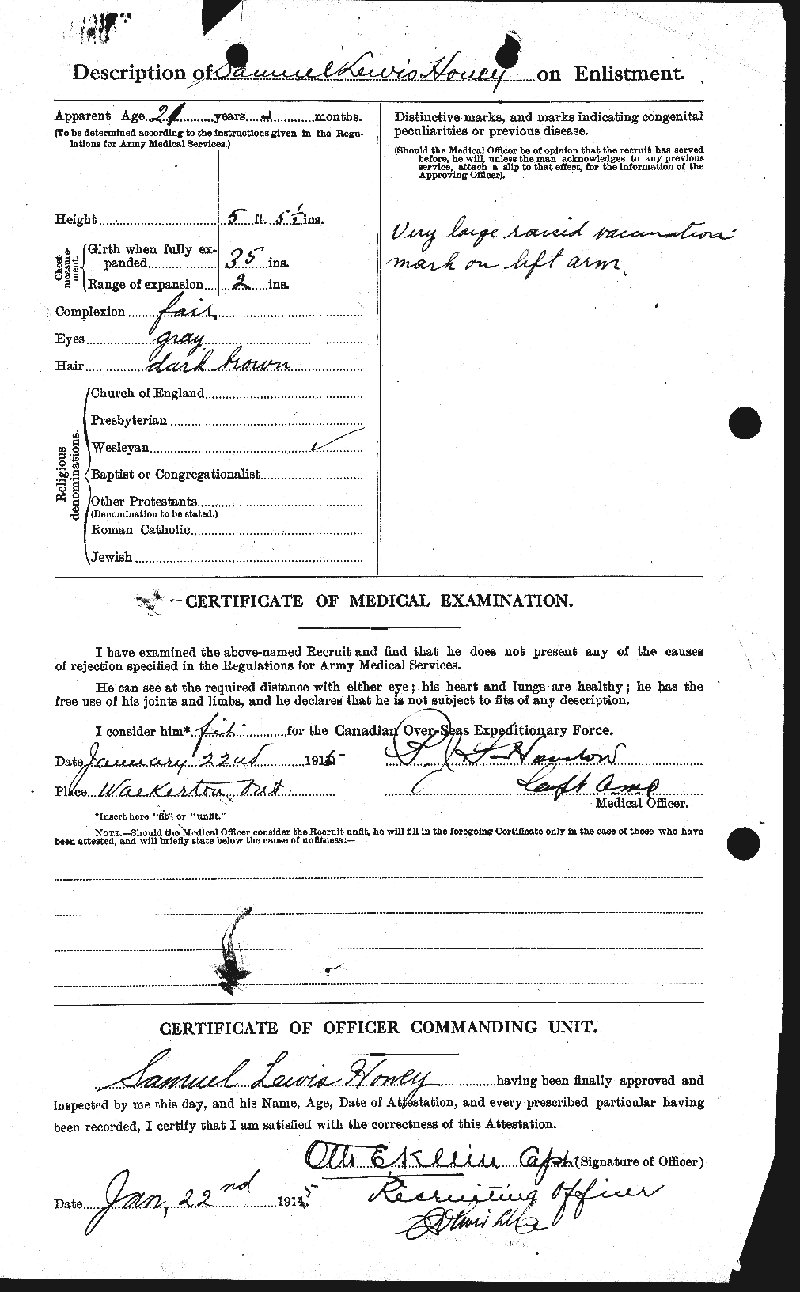 Description of Samuel Lewis Honey on Enlistment.
Apparent Age 21 years months.
(To be determined according to the instructions given in the Regu-
lations for Army Medical Services.)
Height 5 ft. 5½ ins.
Chest measure-ment.
Girth when fully ex-
panded 35 ins.
Range of expansion 2 ins.
Complexion fair
Eyes gray
Hair dark brown
Religious denominations.
Church of England
Presbyterian
Wesleyan ✓
Baptist or Congregationalist
Other Protestants
(Denomination to be stated.)
Roman Catholic
Jewish
Distinctive marks, and marks indicating congenital
peculiarities or previous disease.
(Should the Medical Officer be of opinion that the recruit has served
before, he will, unless the man acknowledges to any previous
service, attach a slip to that effect, for the information of the
Approving Officer).
Very large raised vaccination
mark on left arm.
CERTIFICATE OF MEDICAL EXAMINATION.
I have examined the above-named Recruit and find that he does not present any of the causes
of rejection specified in the Regulations for Army Medical Services.
He can see at the required distance with either eye; his heart and lungs are healthy; he has the
free use of his joints and limbs, and he declares that he is not subject to fits of any description.
I consider him* fit for the Canadian Over-Seas Expeditionary Force.
Date January 22nd 1915
Place Walkerton Ont
Medical Officer.
*Insert here "fit" or "unfit."
NOTE.—Should the Medical Officer consider the Recruit unfit, he will fill in the foregoing Certificate only in the case of those who have
been attested, and will briefly state below the cause of unfitness:—
CERTIFICATE OF OFFICER COMMANDING UNIT.
Samuel Lewis Honey having been finally approved and
inspected by me this day, and his Name, Age, Date of Attestation, and every prescribed particular having
been recorded, I certify that I am satisfied with the correctness of this Attestation.
Otto E Klein Capt. (Signature of Officer)
Date Jan, 22nd 1915
Recruiting Officer